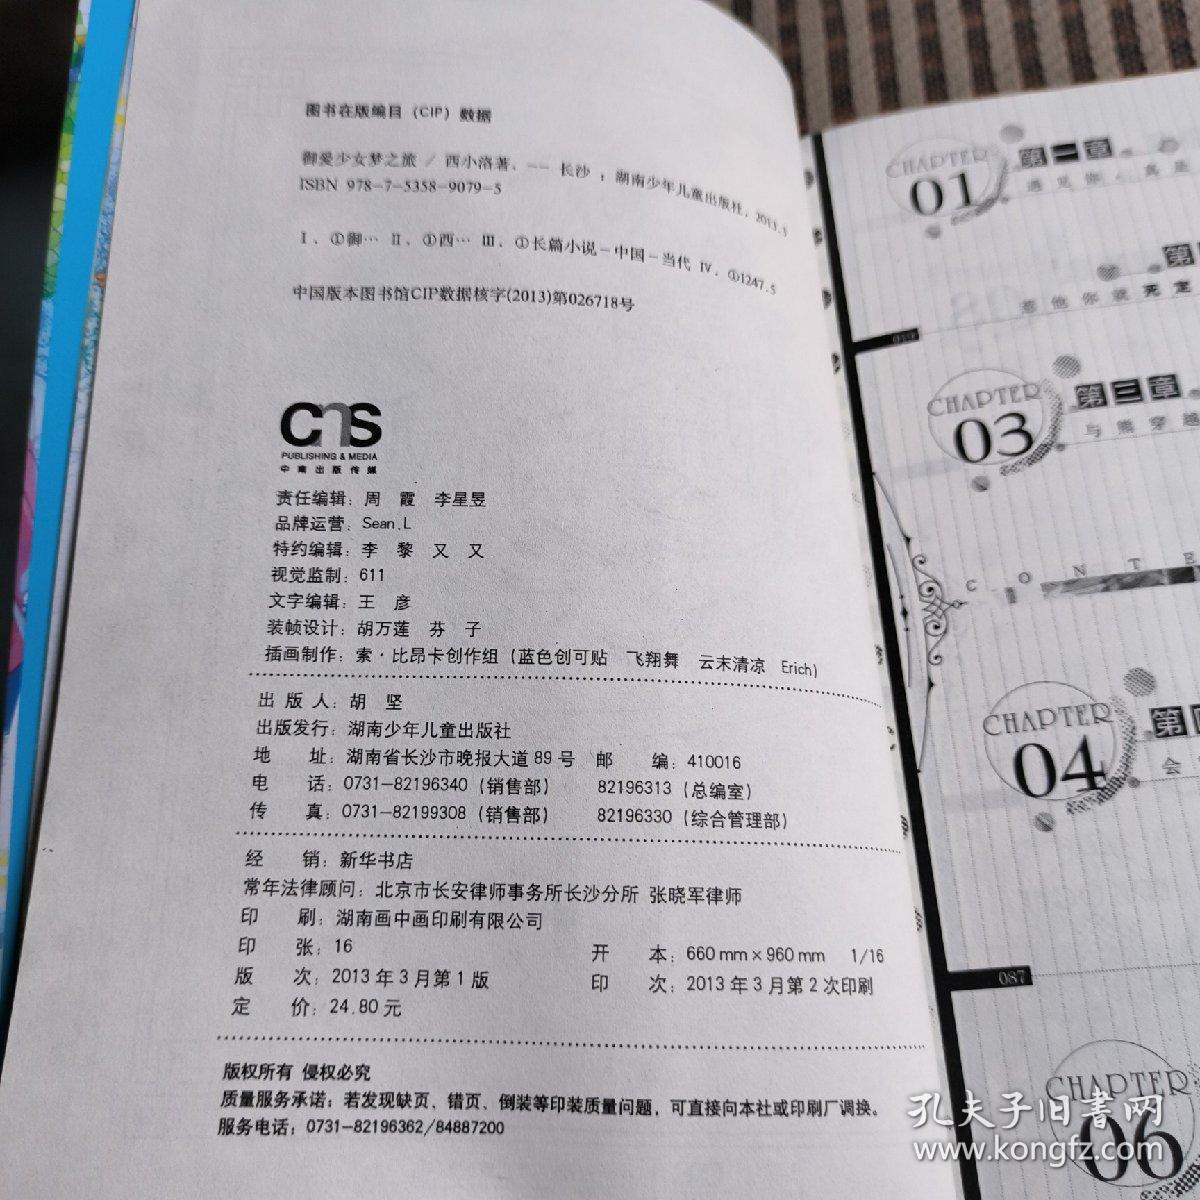 图书在版编目(CIP)数据
御爱少女梦之旅 / 西小洛著. -- 长沙 : 湖南少年儿童出版社, 2013.3
ISBN 978-7-5358-9079-5
Ⅰ. ①御… Ⅱ. ①西… Ⅲ. ①长篇小说-中国-当代 Ⅳ. ①I247.5
中国版本图书馆CIP数据核字(2013)第026718号
CNS
PUBLISHING & MEDIA
中南出版传媒
责任编辑: 周 霞 李星昱
品牌运营: Sean.L
特约编辑: 李 黎 又 又
视觉监制: 611
文字编辑: 王 彦
装帧设计: 胡万莲 芬 子
插画制作: 索·比昂卡创作组(蓝色创可贴 飞翔舞 云末清凉 Erich)
出 版 人: 胡 坚
出版发行: 湖南少年儿童出版社
地 址: 湖南省长沙市晚报大道 89 号 邮 编: 410016
电 话: 0731-82196340(销售部) 82196313(总编室)
传 真: 0731-82199308(销售部) 82196330(综合管理部)
经 销: 新华书店
常年法律顾问: 北京市长安律师事务所长沙分所 张晓军律师
印 刷: 湖南画中画印刷有限公司
印 张: 16 开 本: 660 mm × 960 mm 1/16
版 次: 2013 年 3 月第 1 版 印 次: 2013 年 3 月第 2 次印刷
定 价: 24.80 元
版权所有 侵权必究
质量服务承诺: 若发现缺页、错页、倒装等印装质量问题, 可直接向本社或印刷厂调换。
服务电话: 0731-82196362/84887200
CHAPTER 01 第一章
遇见你,真是
第
惹他你就死定
CHAPTER 03 第三章
与熊穿越
CONTE
CHAPTER 04 第四
会
087
CHAPTER 06
孔夫子旧书网
www.kongfz.com